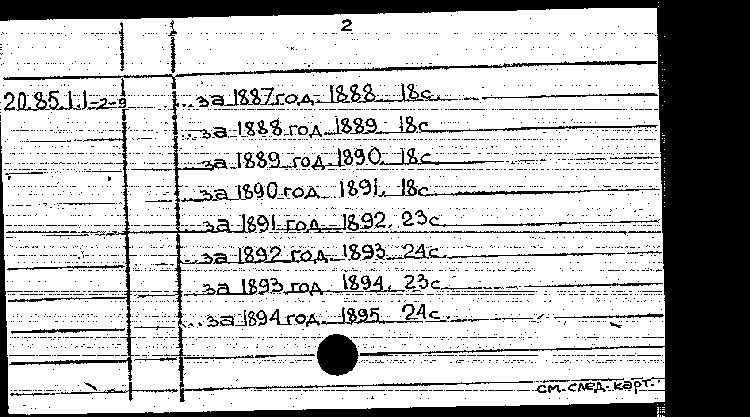 2
20.85.1.1-2-9 ...за 1887 год. 1888 18с.
...за 1888 год. 1889 18с
за 1889 год. 1890. 18с.
за 1890 год 1891. 18с.
за 1891 год. 1892. 23с.
...за 1892 год. 1893 24с.
...за 1893 год 1894. 23с.
...за 1894 год. 1895 24с.
см. след. карт.